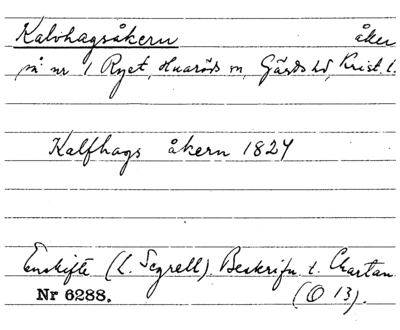 Kalvhagsåkern åker
på nr 1 Ryet, Huaröds sn, Gärds hd, Krist. l.
Kalfhags åkern 1827
Enskifte (L. Segrell). Beskrifn t. Chartan
Nr 6288. (O 13).